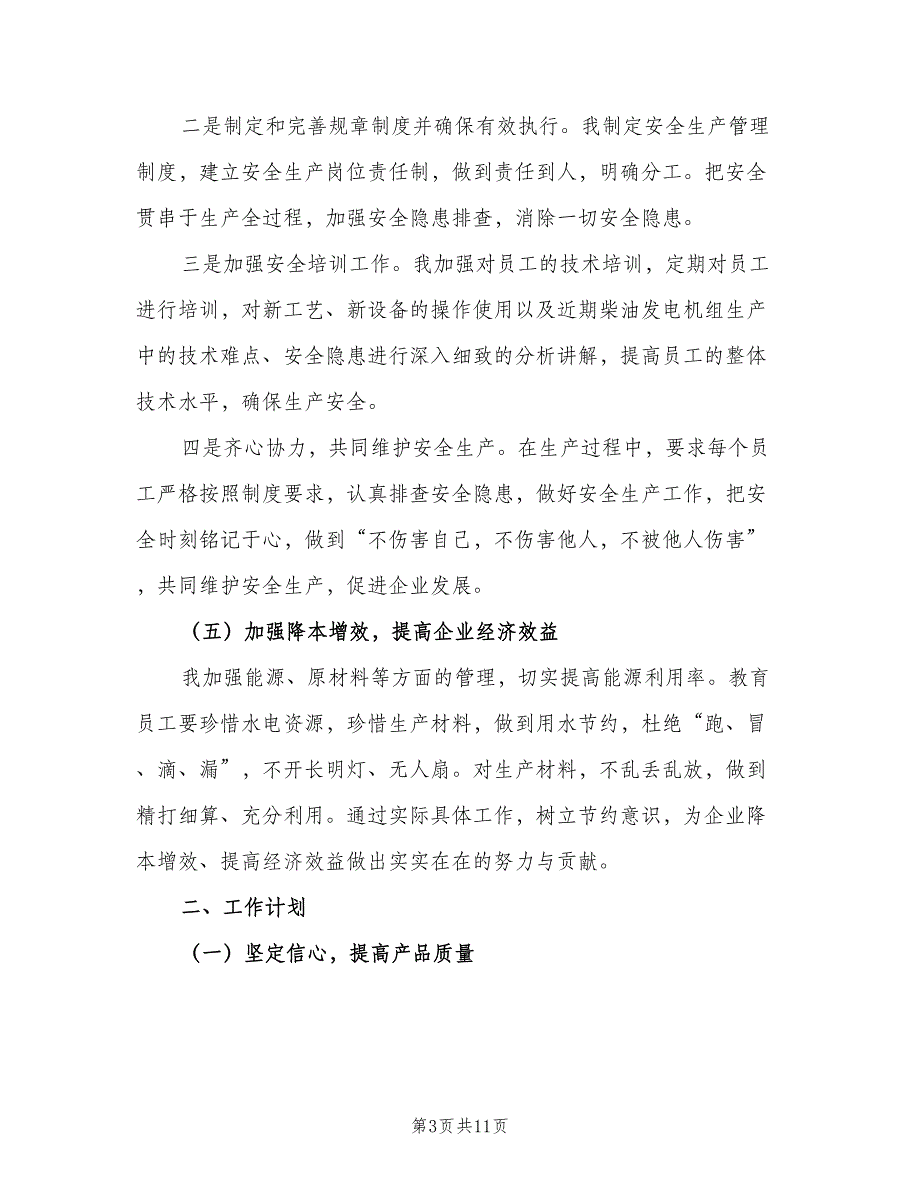 二是制定和完善规章制度并确保有效执行。我制定安全生产管理
制度，建立安全生产岗位责任制，做到责任到人，明确分工。把安全
贯串于生产全过程，加强安全隐患排查，消除一切安全隐患。
三是加强安全培训工作。我加强对员工的技术培训，定期对员工
进行培训，对新工艺、新设备的操作使用以及近期柴油发电机组生产
中的技术难点、安全隐患进行深入细致的分析讲解，提高员工的整体
技术水平，确保生产安全。
四是齐心协力，共同维护安全生产。在生产过程中，要求每个员
工严格按照制度要求，认真排查安全隐患，做好安全生产工作，把安
全时刻铭记于心，做到“不伤害自己，不伤害他人，不被他人伤害”
，共同维护安全生产，促进企业发展。
（五）加强降本增效，提高企业经济效益
我加强能源、原材料等方面的管理，切实提高能源利用率。教育
员工要珍惜水电资源，珍惜生产材料，做到用水节约，杜绝“跑、冒
、滴、漏”，不开长明灯、无人扇。对生产材料，不乱丢乱放，做到
精打细算、充分利用。通过实际具体工作，树立节约意识，为企业降
本增效、提高经济效益做出实实在在的努力与贡献。
二、工作计划
（一）坚定信心，提高产品质量
第3页共11页